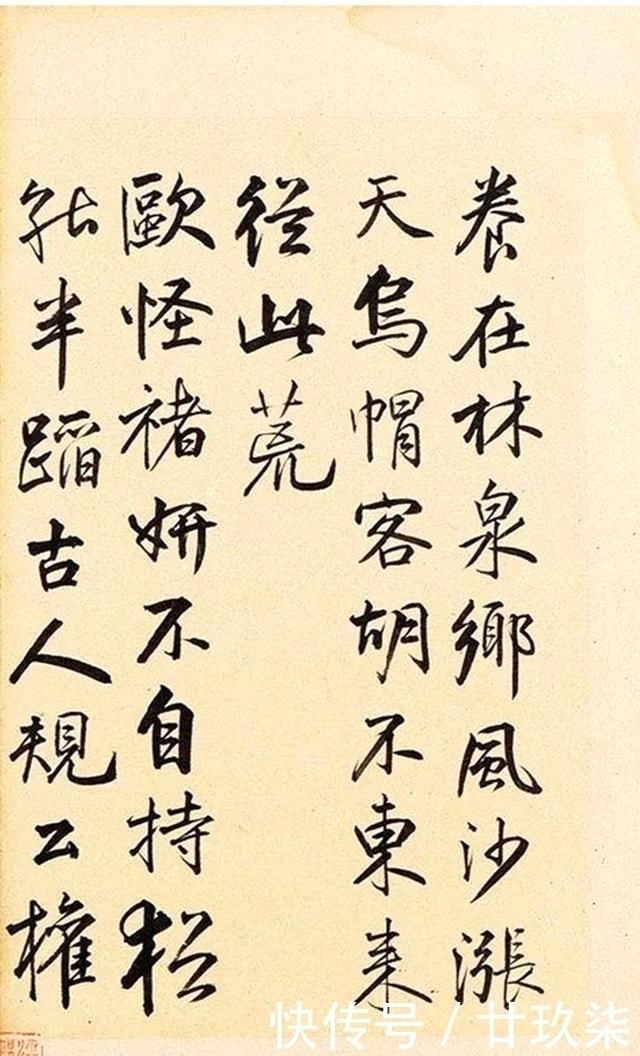 養在林泉鄉風沙漲
天烏帽客胡不東来
從此荒
歐怪褚妍不自持猶
能半蹈古人規公權
快传号 / 廿玖柒